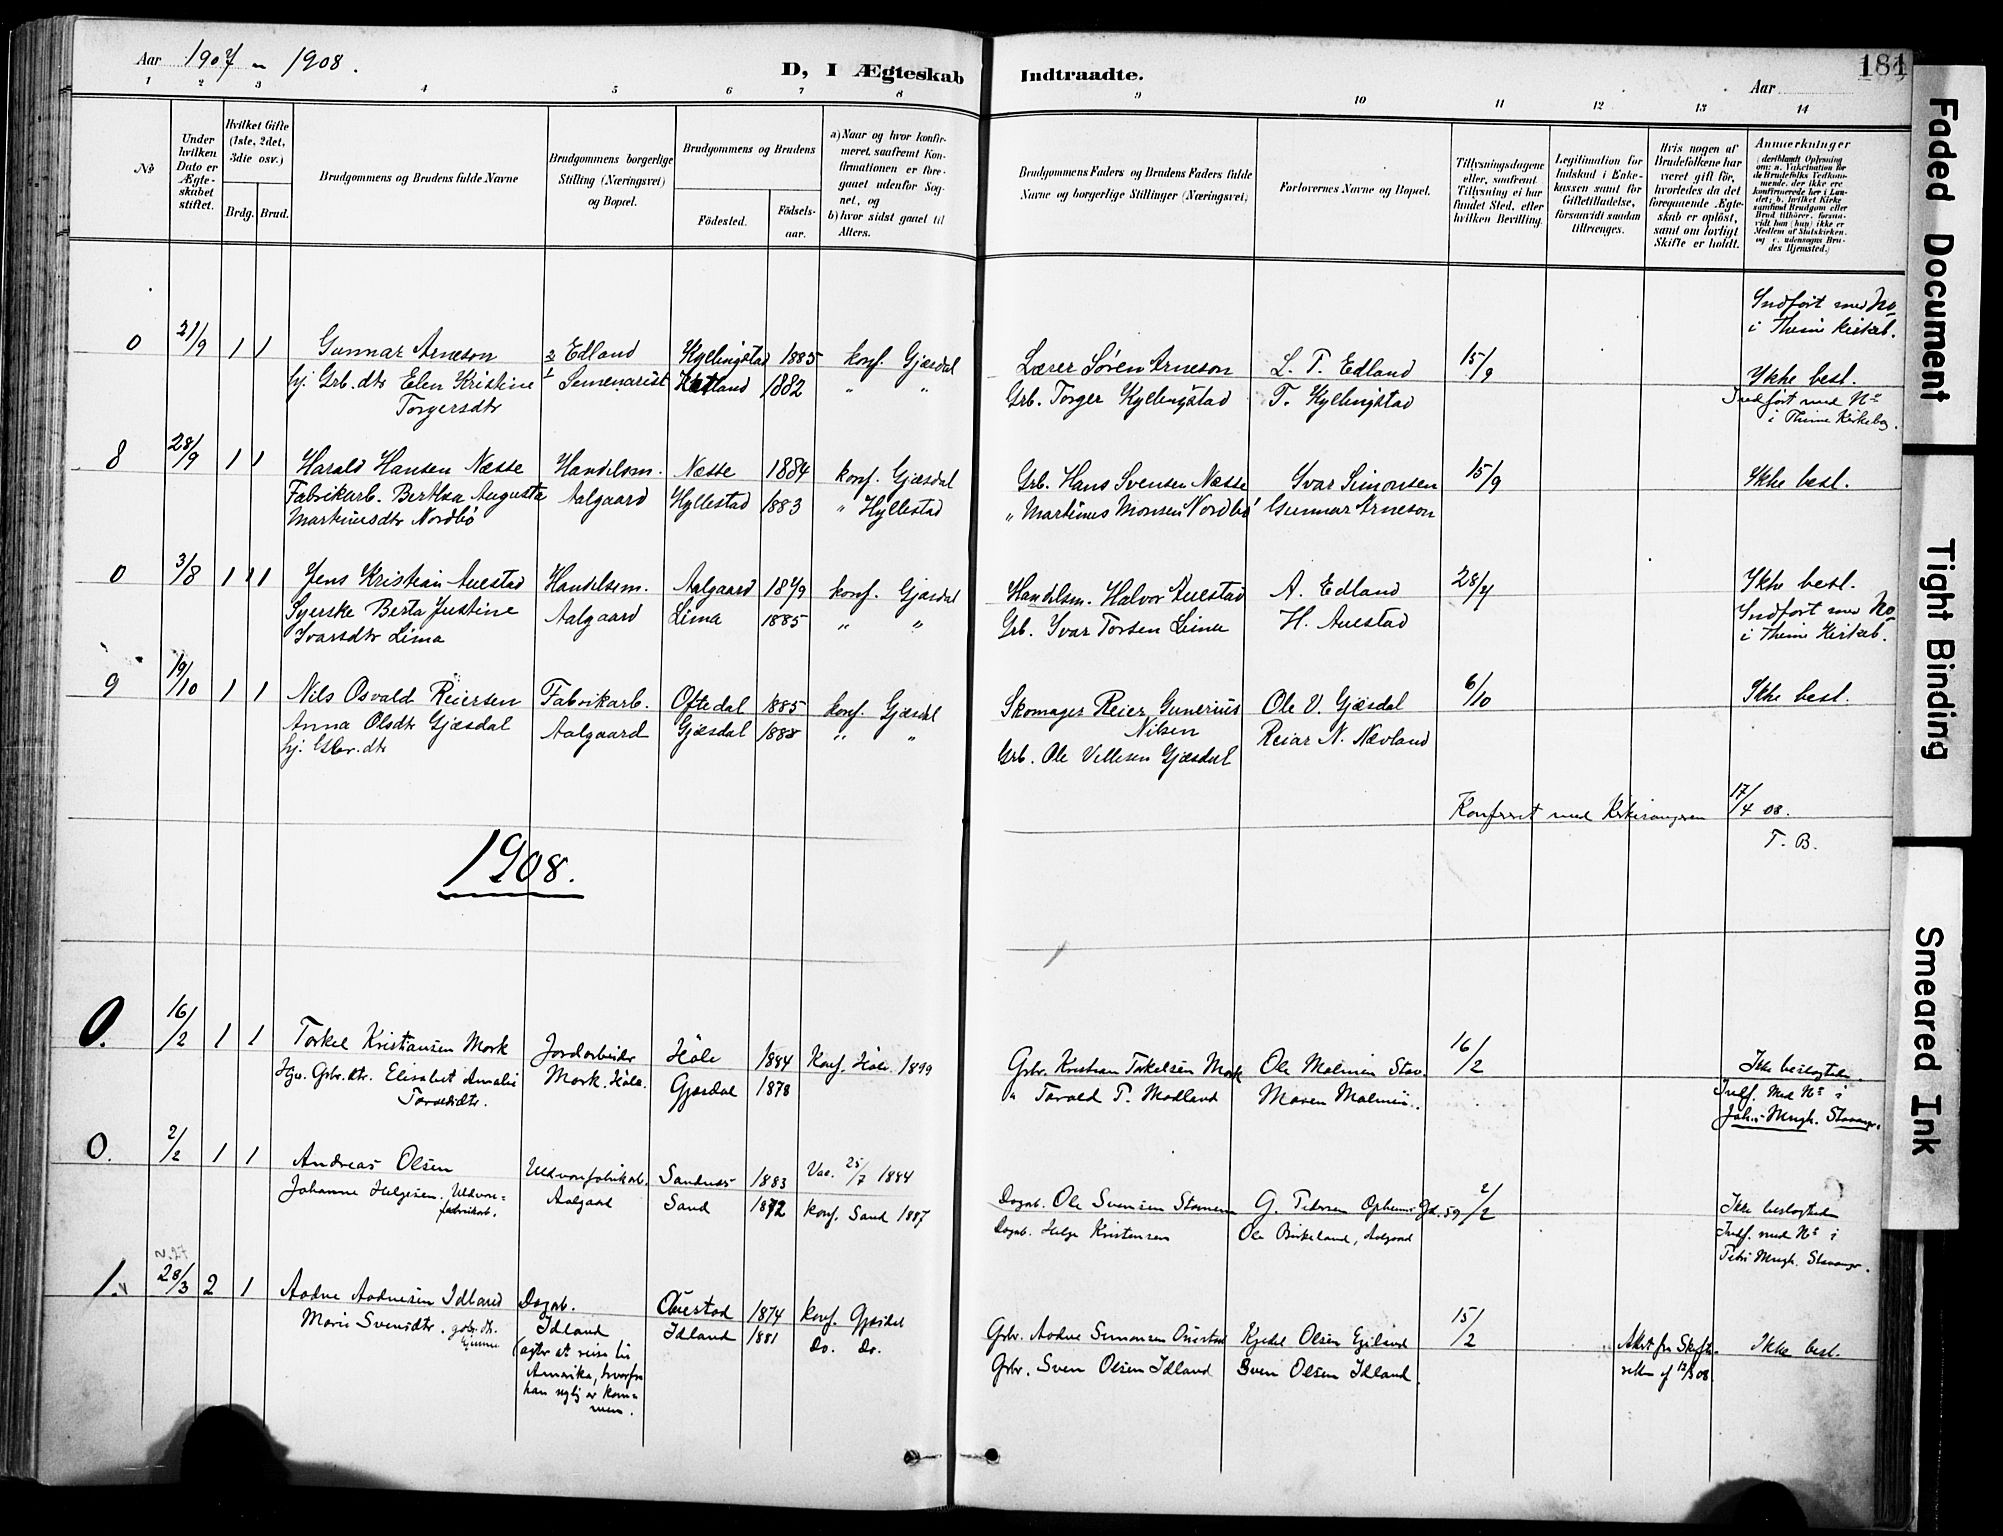 Aar 1907 - 1908.
D, I Ægteskab Indtraadte.
Aar
181
1 2 3 4 5 6 7 8 9 10 11 12 13 14
No
Under hvilken Dato er Ægteskabet stiftet.
Hvilket Gifte (1ste, 2det, 3die osv.)
Brdg. Brud.
Brudgommens og Brudens fulde Navne
Brudgommens borgerlige Stilling (Næringsvei) og Bopæl.
Brudgommens og Brudens
Födested.
Födsels-aar.
a) Naar og hvor konfirmeret, saafremt Konfirmationen er foregaaet udenfor Sognet, og
b) hvor sidst gaaet til Alters.
Brudgommens Faders og Brudens Faders fulde Navne og borgerlige Stillinger (Næringsvei)
Forlovernes Navne og Bopæl.
Tillysningsdagene eller, saafremt Tillysning ei har fundet Sted, efter hvilken Bevilling.
Legitimation for Indskud i Enkekassen samt for Giftetilladelse, forsaavidt saadan tiltrænges.
Hvis nogen af Brudefolkene har været gift för, hvorledes da det foregaaende Ægteskab er oplöst, samt om lovligt Skifte er holdt.
Anmærkninger
Indført med No
i Thime Kirkeb.
0 21/9 1 1 Gunnar Arneson Edland Kyllingstad 1885 konf. Gjæsdal Lærer Søren Arneson L. T. Edland 15/9 Ikke besl.
hj. Grb. dtr Elen Kristine Semenarist Hetland 1882 " " Grb. Torger Kyllingstad T. Kyllingstad
Torgersdtr
Indført med No
i Thime Kirkebog.
8 28/9 1 1 Harald Hansen Næsse Handelsm. Næsse 1884 konf. Gjæsdal Grb. Hans Svensen Næsse Ivar Simonsen 15/9 Ikke besl.
Fabrikarb. Berthea Augusta Aalgaard Hyllestad 1883 " Hyllestad " Martinus Monsen Nordbø Gunnar Arneson
Martinusdtr Nordbø
0 3/8 1 1 Jens Kristian Auestad Handelsm. Aalgaard 1879 konf. Gjæsdal Handelsm. Halvor Auestad A. Edland 28/7 Ikke besl.
Syerske Berta Justine Aalgaard Lima 1885 " " Grb. Ivar Torsen Lima H. Auestad Indført med No
Ivarsdtr Lima i Thime Kirkeb.
9 19/10 1 1 Nils Osvald Reiersen Fabrikarb. Oftedal 1885 konf. Gjæsdal Skomager Reier Gunerius Ole V. Gjæsdal 6/10 Ikke besl.
Anna Olsdtr Gjæsdal Aalgaard Gjæsdal 1888 " " Nilsen Reiar N. Nævland
hj. Gbr. dtr Grb. Ole Villesen Gjæsdal
Konfereret med Kirkesangeren 17/4 08.
T. B.
1908.
0. 16/2 1 1 Torkel Kristiansen Mork Jordarbeider Høle 1884 Konf. Høle 1899 Grbr. Kristian Torkelsen Mork Ole Malmin Stav. 16/2 Ikke beslægtede.
Hjv. Grbr. dtr. Elisabet Amalie Mork. Høle. Gjæsdal 1878 " Torald T. Modland Maren Malmin. Indf. med No i
Joh.s Mngh. Stavanger.
0. 2/2 1 1 Andreas Olsen Uldvarefabrikarb. Sandnæs 1883 Vac. 25/7 1884 Dagarb. Ole Svensen G. Pedersen Opheims Gd. 59 2/2 Ikke beslægtede
Johanne Helgesen. Uldvarefabrikarb. Aalgaard Sand 1872 konf. Sand 1887 Dagarb. Helge Kristensen Ole Birkeland, Aalgaard Indf. med No i
Petri Mngh. Stavanger.
1. 28/3 2 1 Aadne Aadnesen Idland Dagarb. Auestad 1874 konf. Gjæsdal Grbr. Aadne Simonsen Auestad Kjedel Olsen Egeland 15/2 Attest fra Skifteretten af 12/3 08. Ikke besl.
Marie Svensdtr. gbr. dtr. hjemme Idland Idland 1881 Do. Do. Grbr. Sven Olsen Idland Sven Olsen Idland.
(agter at reise til
Amerika, hvorfra
han nylig er kommen.
Faded Document
Tight Binding
Smeared Ink